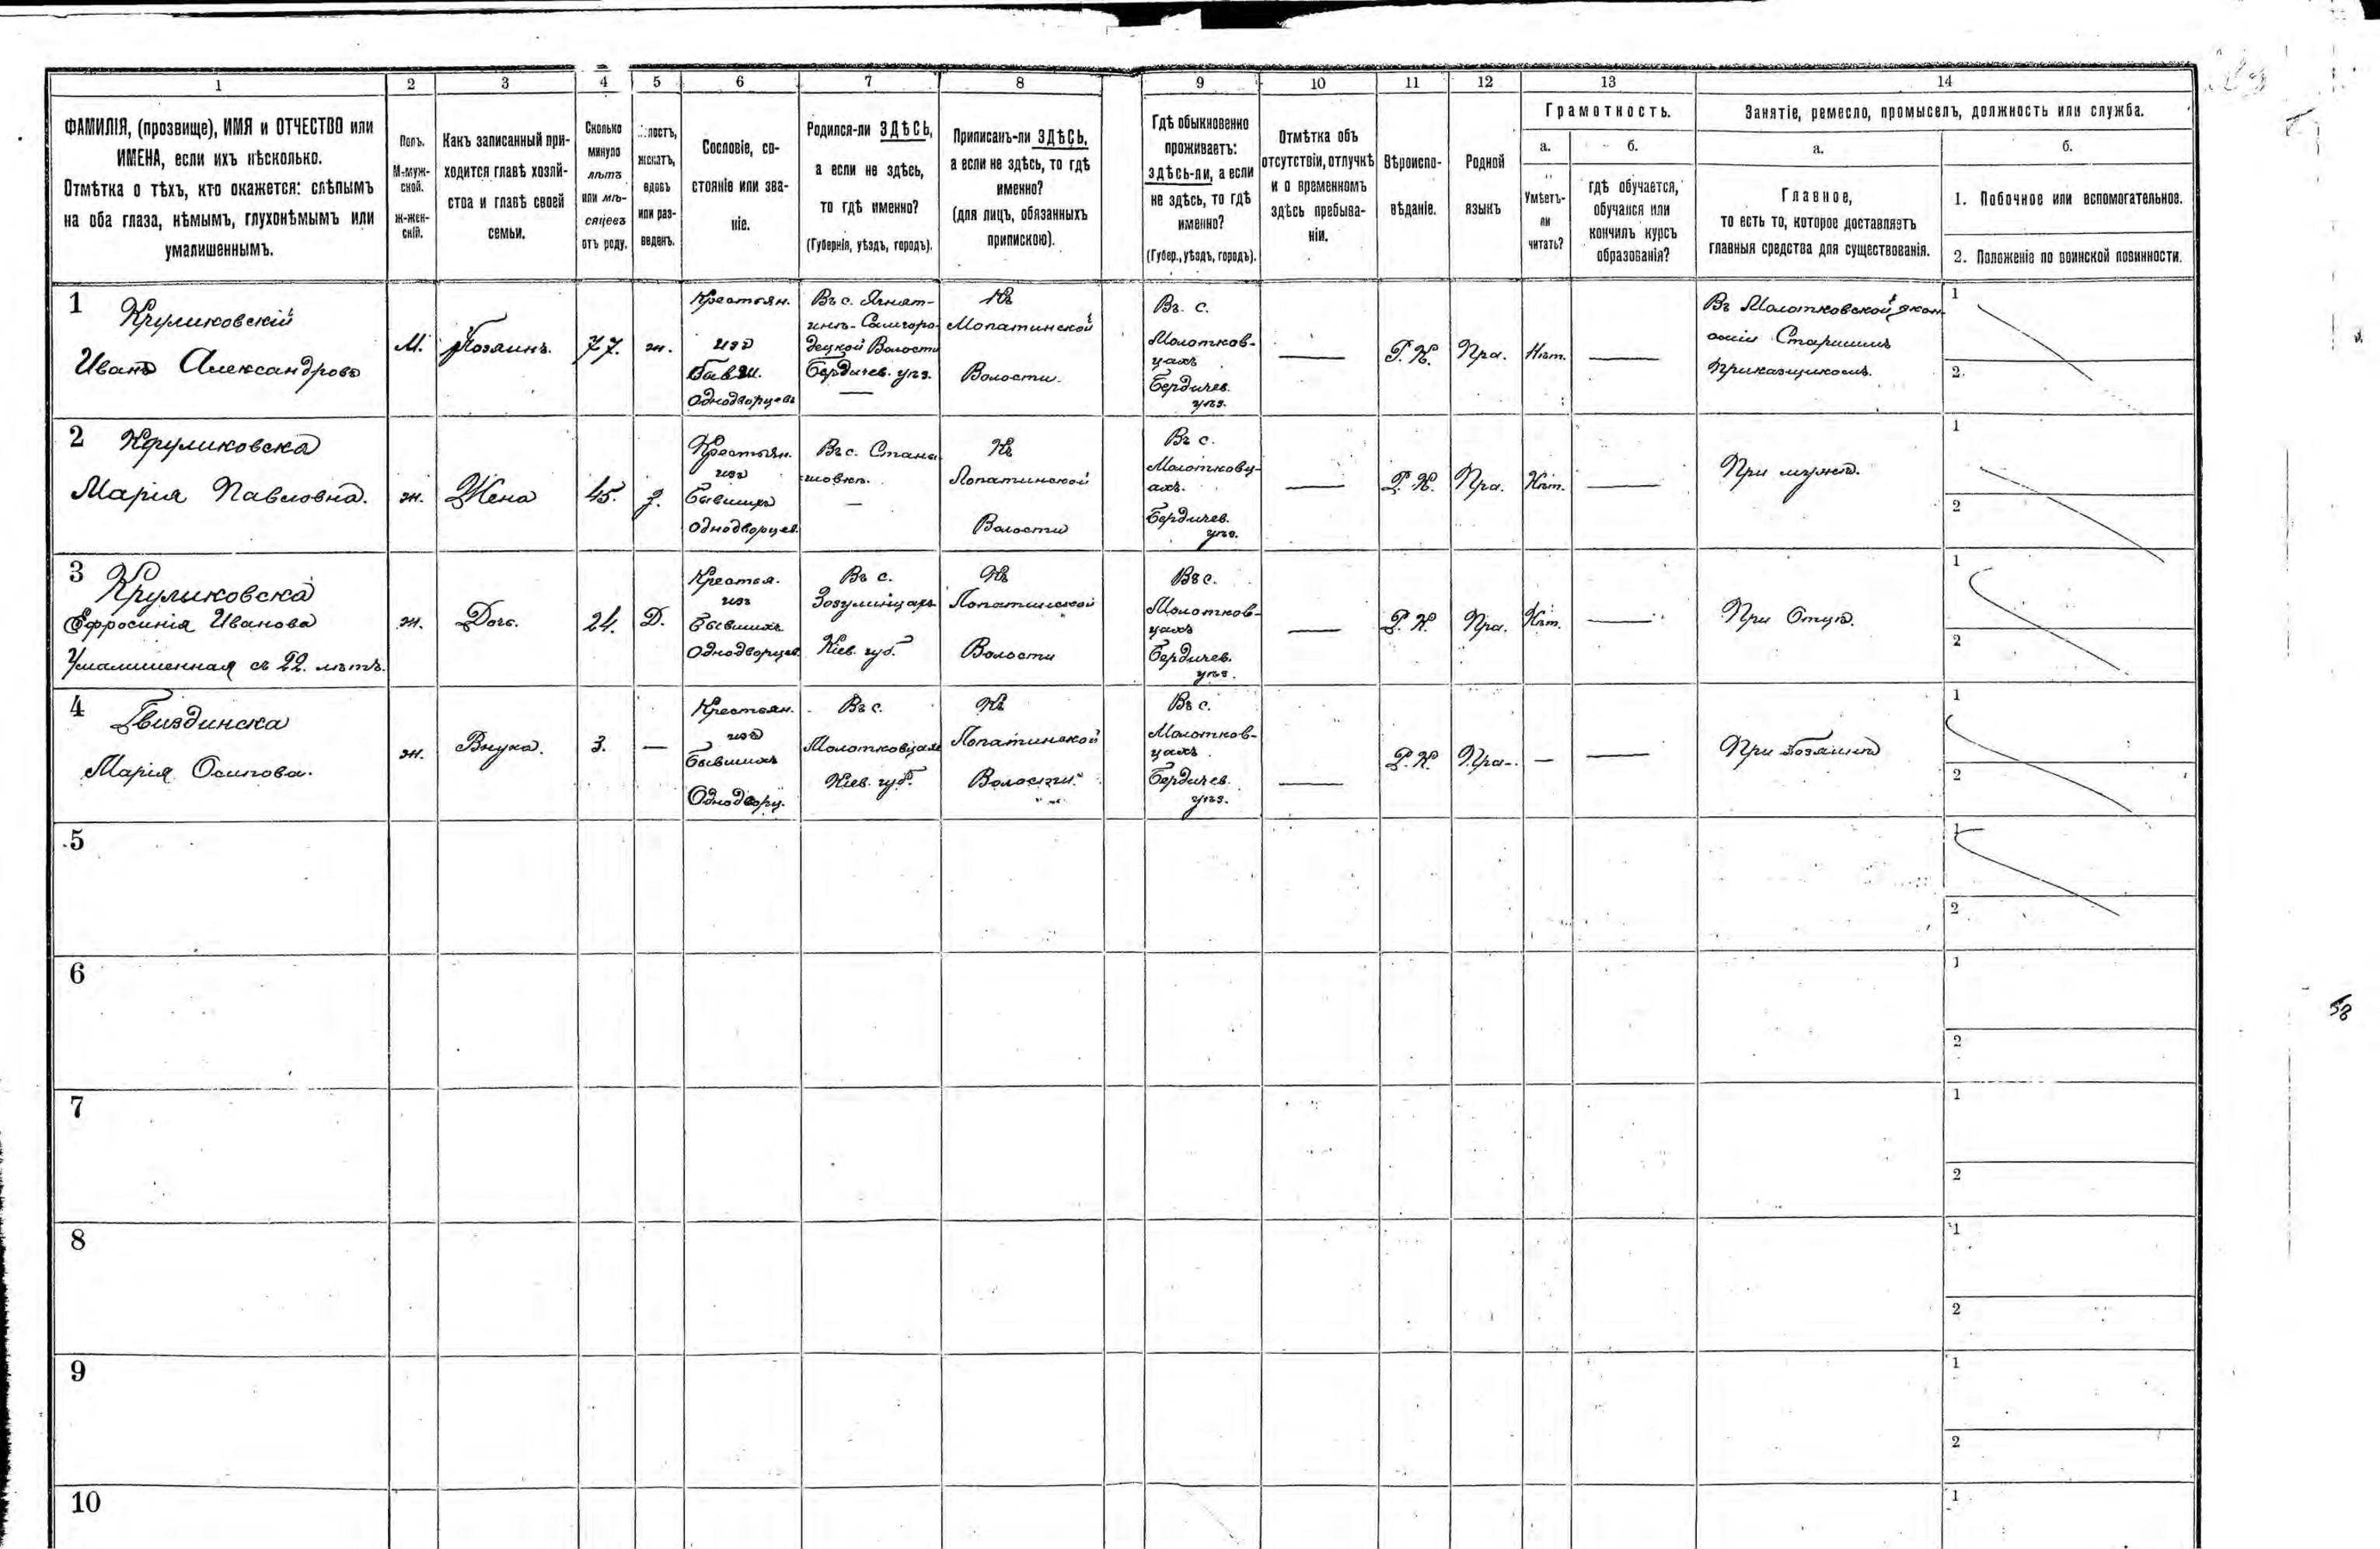 1 2 3 4 5 6 7 8 9 10 11 12 13 14
ФАМИЛІЯ, (прозвище), ИМЯ и ОТЧЕСТВО или
ИМЕНА, если ихъ нѣсколько.
Отмѣтка о тѣхъ, кто окажется: слѣпымъ
на оба глаза, нѣмымъ, глухонѣмымъ или
умалишеннымъ.
Полъ.
М-муж-
ской.
Ж-жен-
скій.
Какъ записанный при-
ходится главѣ хозяй-
ства и главѣ своей
семьи.
Сколько
минуло
лѣтъ
или мѣ-
сяцевъ
отъ роду.
лостъ,
женатъ,
вдовъ
или раз-
веденъ.
Сословіе, со-
стояніе или зва-
ніе.
Родился-ли ЗДѢСЬ,
а если не здѣсь,
то гдѣ именно?
(Губернія, уѣздъ, городъ).
Приписанъ-ли ЗДѢСЬ,
а если не здѣсь, то гдѣ
именно?
(для лицъ, обязанныхъ
припискою).
Гдѣ обыкновенно
проживаетъ:
здѣсь-ли, а если
не здѣсь, то гдѣ
именно?
(Губер., уѣздъ, городъ).
Отмѣтка объ
отсутствіи, отлучкѣ
и о временномъ
здѣсь пребыва-
ніи.
Вѣроиспо-
вѣданіе.
Родной
языкъ
Грамотность.
а.
Умѣетъ-
ли
читать?
б.
гдѣ обучается,
обучался или
кончилъ курсъ
образованія?
Занятіе, ремесло, промыселъ, должность или служба.
а.
Главное,
то есть то, которое доставляетъ
главныя средства для существованія.
б.
1. Побочное или вспомогательное.
2. Положеніе по воинской повинности.
1
Круликовскій
Иванъ Александровъ
М.
Хозяинъ.
77.
ж.
Крестьян.
изъ
Бывш.
Однодворцевъ
Въ с.
Бердичев. уѣз.
Къ
Лопатинской
Волости.
Въ с.
Молотков-
цахъ
Бердичев.
уѣз.
Р. К.
Пра.
Нѣт.
Въ Молотковской экон-
оміи Старшимъ
Приказщикомъ.
1
2.
2
Круликовска
Марія Павловна.
ж.
Жена
45.
З.
Крестьян.
изъ
Бывшихъ
Однодворцев.
Въ с.
Къ
Лопатинской
Волости
Въ с.
Молотковц-
ахъ.
Бердичев.
уѣз.
Р. К.
Пра.
Нѣт.
При мужѣ.
1
2
3
Круликовска
Ефросинія Иванова
Умалишенная съ 22. лѣтъ.
ж.
Дочь.
24.
Д.
Крестья.
изъ
Бывшихъ
Однодворцев.
Въ с.
Зозулинцахъ
Кіев. губ.
Къ
Лопатинской
Волости
Въ с.
Молотков-
цахъ
Бердичев.
уѣз.
Р. К.
Пра.
Нѣт.
При Отцѣ.
1
2
4
Гвиздинска
Марія Осипова.
ж.
Внука.
3.
—
Крестьян.
изъ
Бывшихъ
Однодворц.
Въ с.
Молотковцахъ
Кіев. губ.
Къ
Лопатинской
Волости.
Въ с.
Молотков-
цахъ.
Бердичев.
уѣз.
Р. К.
Пра.
—
При Хозяинѣ
1
2
5
1
2
6
1
2
7
1
2
8
1
2
9
1
2
10
1
58